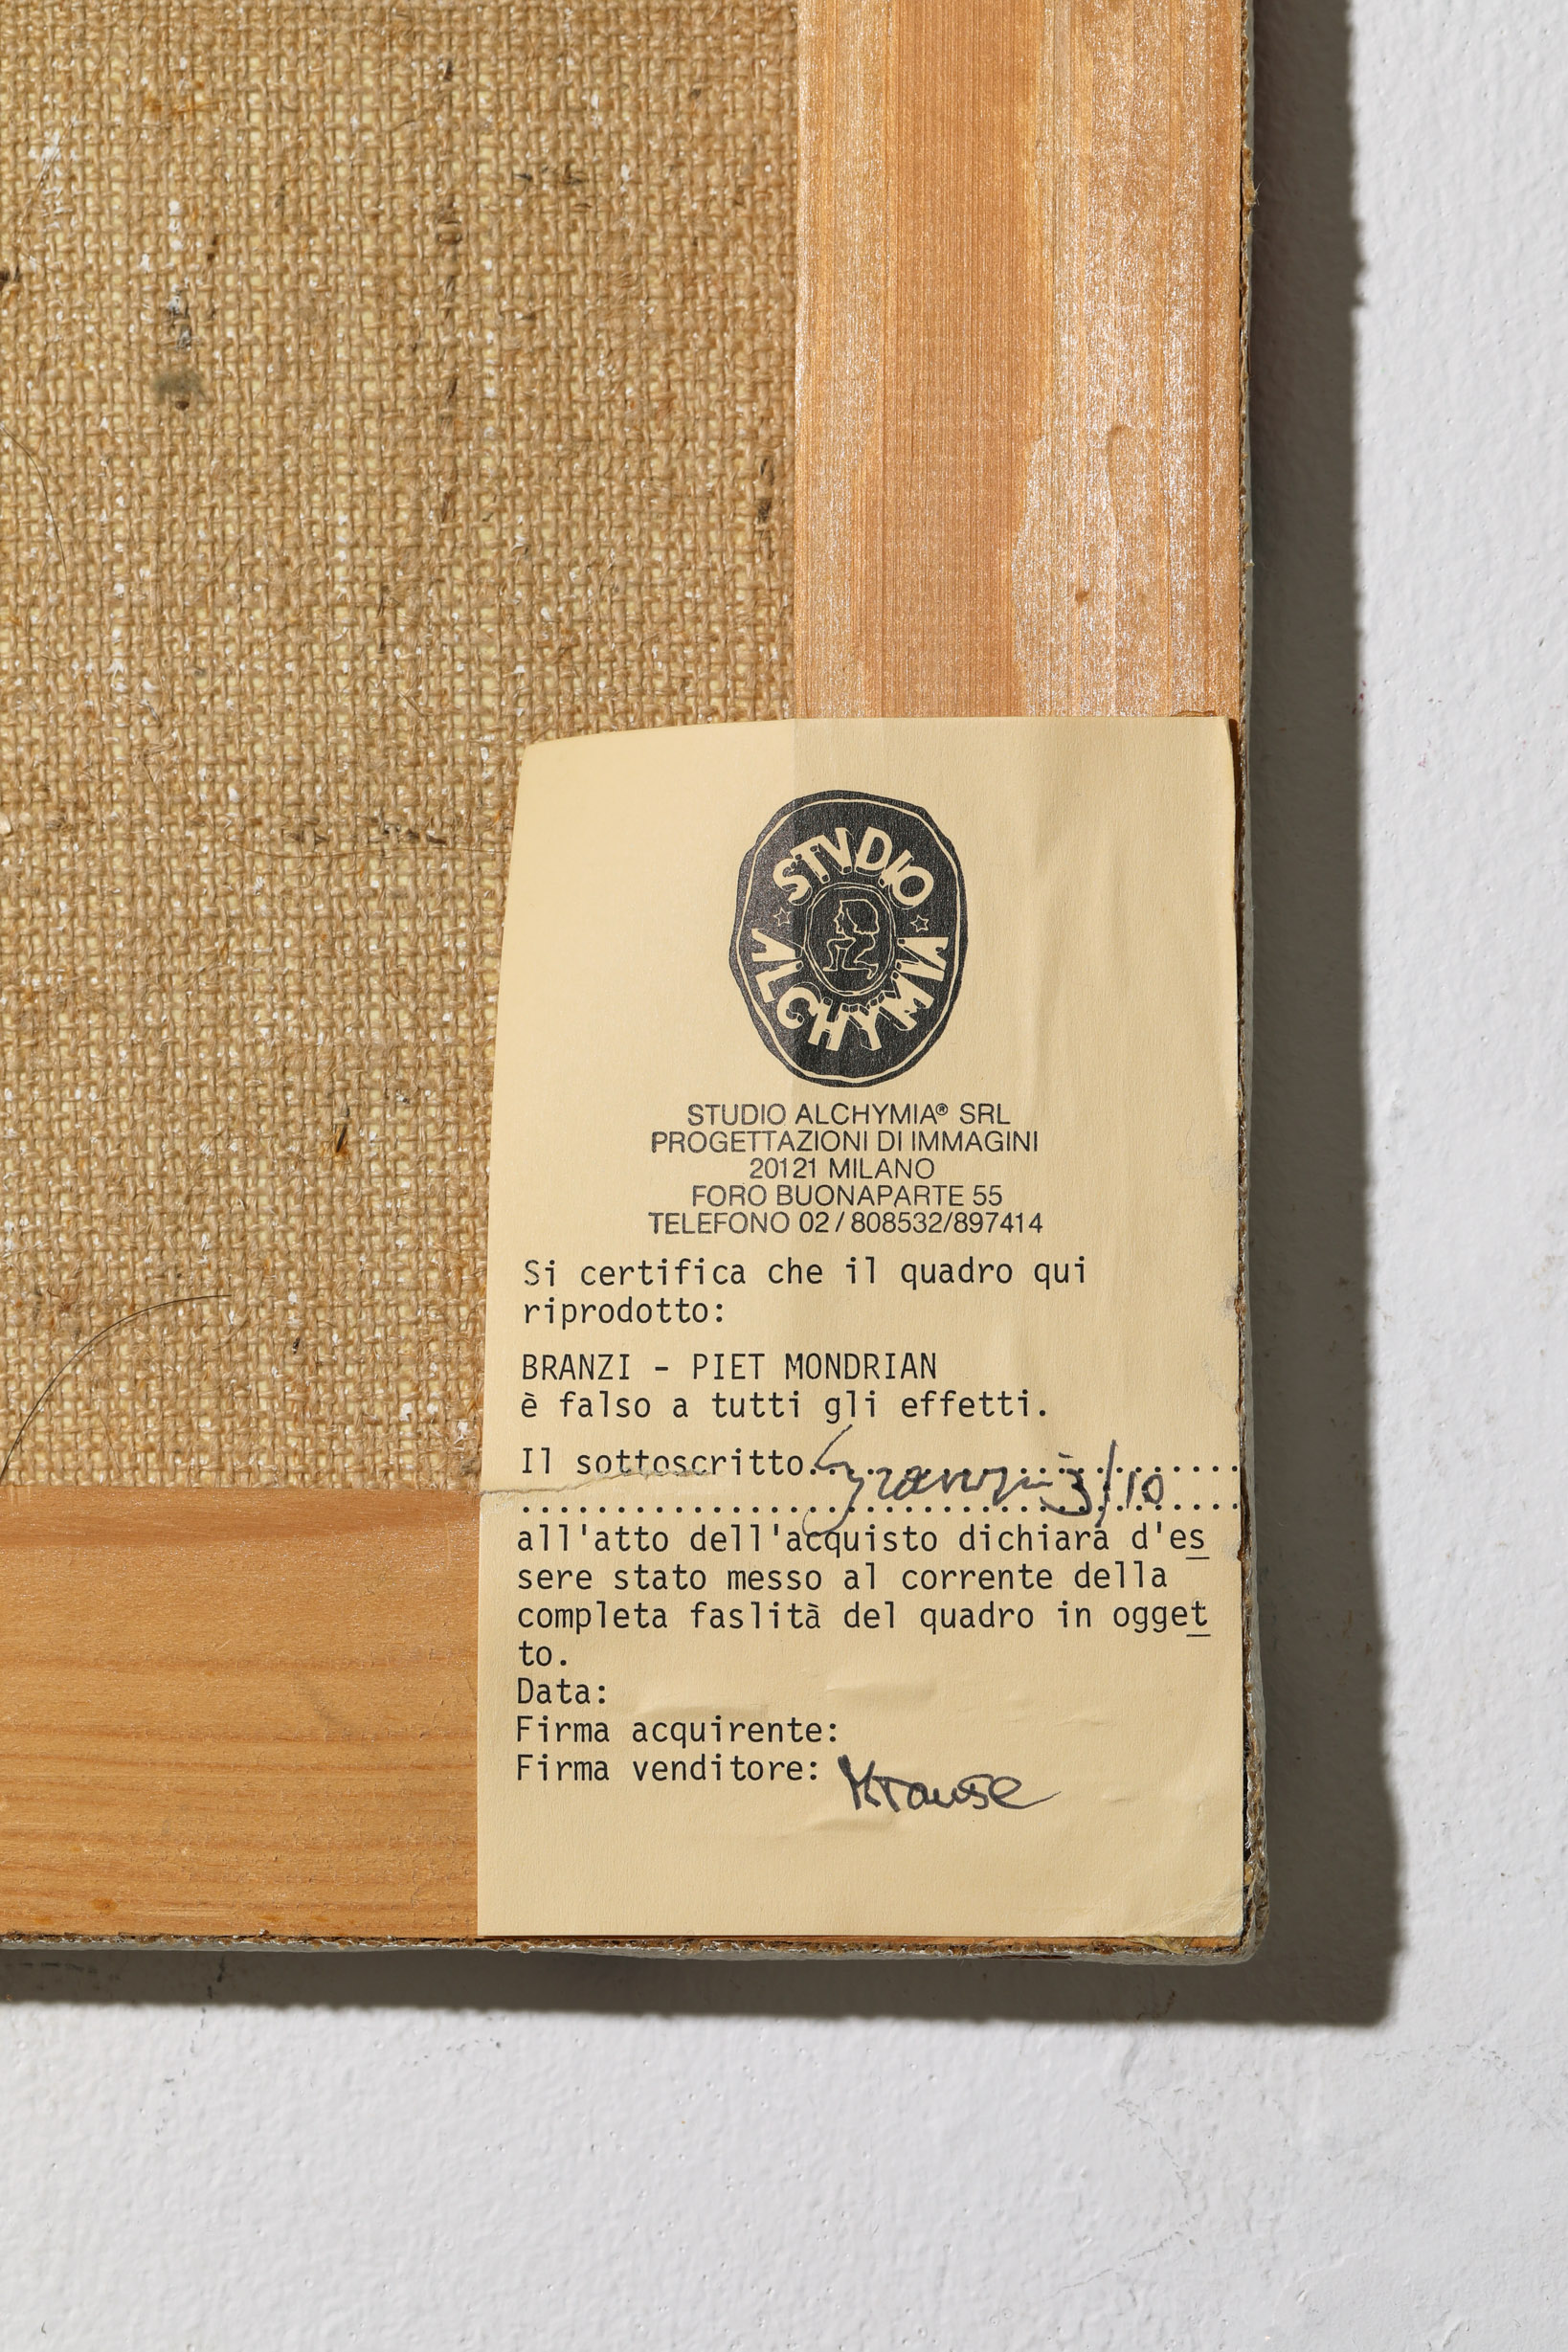 STVDIO
ALCHYMIA
STUDIO ALCHYMIA® SRL
PROGETTAZIONI DI IMMAGINI
20121 MILANO
FORO BUONAPARTE 55
TELEFONO 02/808532/897414
Si certifica che il quadro qui
riprodotto:
BRANZI - PIET MONDRIAN
è falso a tutti gli effetti.
Il sottoscritto........................ 3/10
........................................
all'atto dell'acquisto dichiara d'es
sere stato messo al corrente della
completa faslità del quadro in ogget
to.
Data:
Firma acquirente:
Firma venditore: Krause